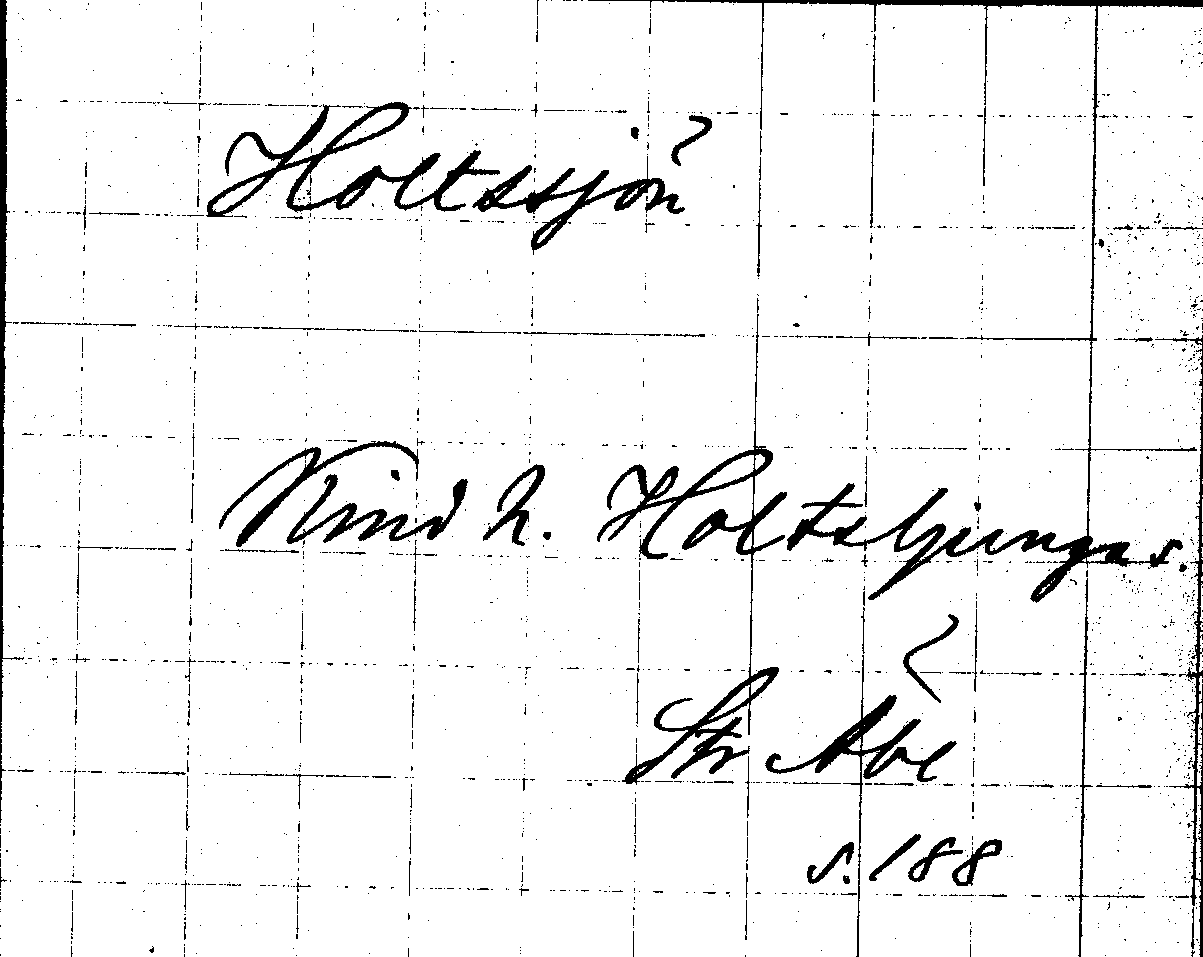 Holtssjön
Kind h. Holtsljunga s.
Str Åbe
s. 188